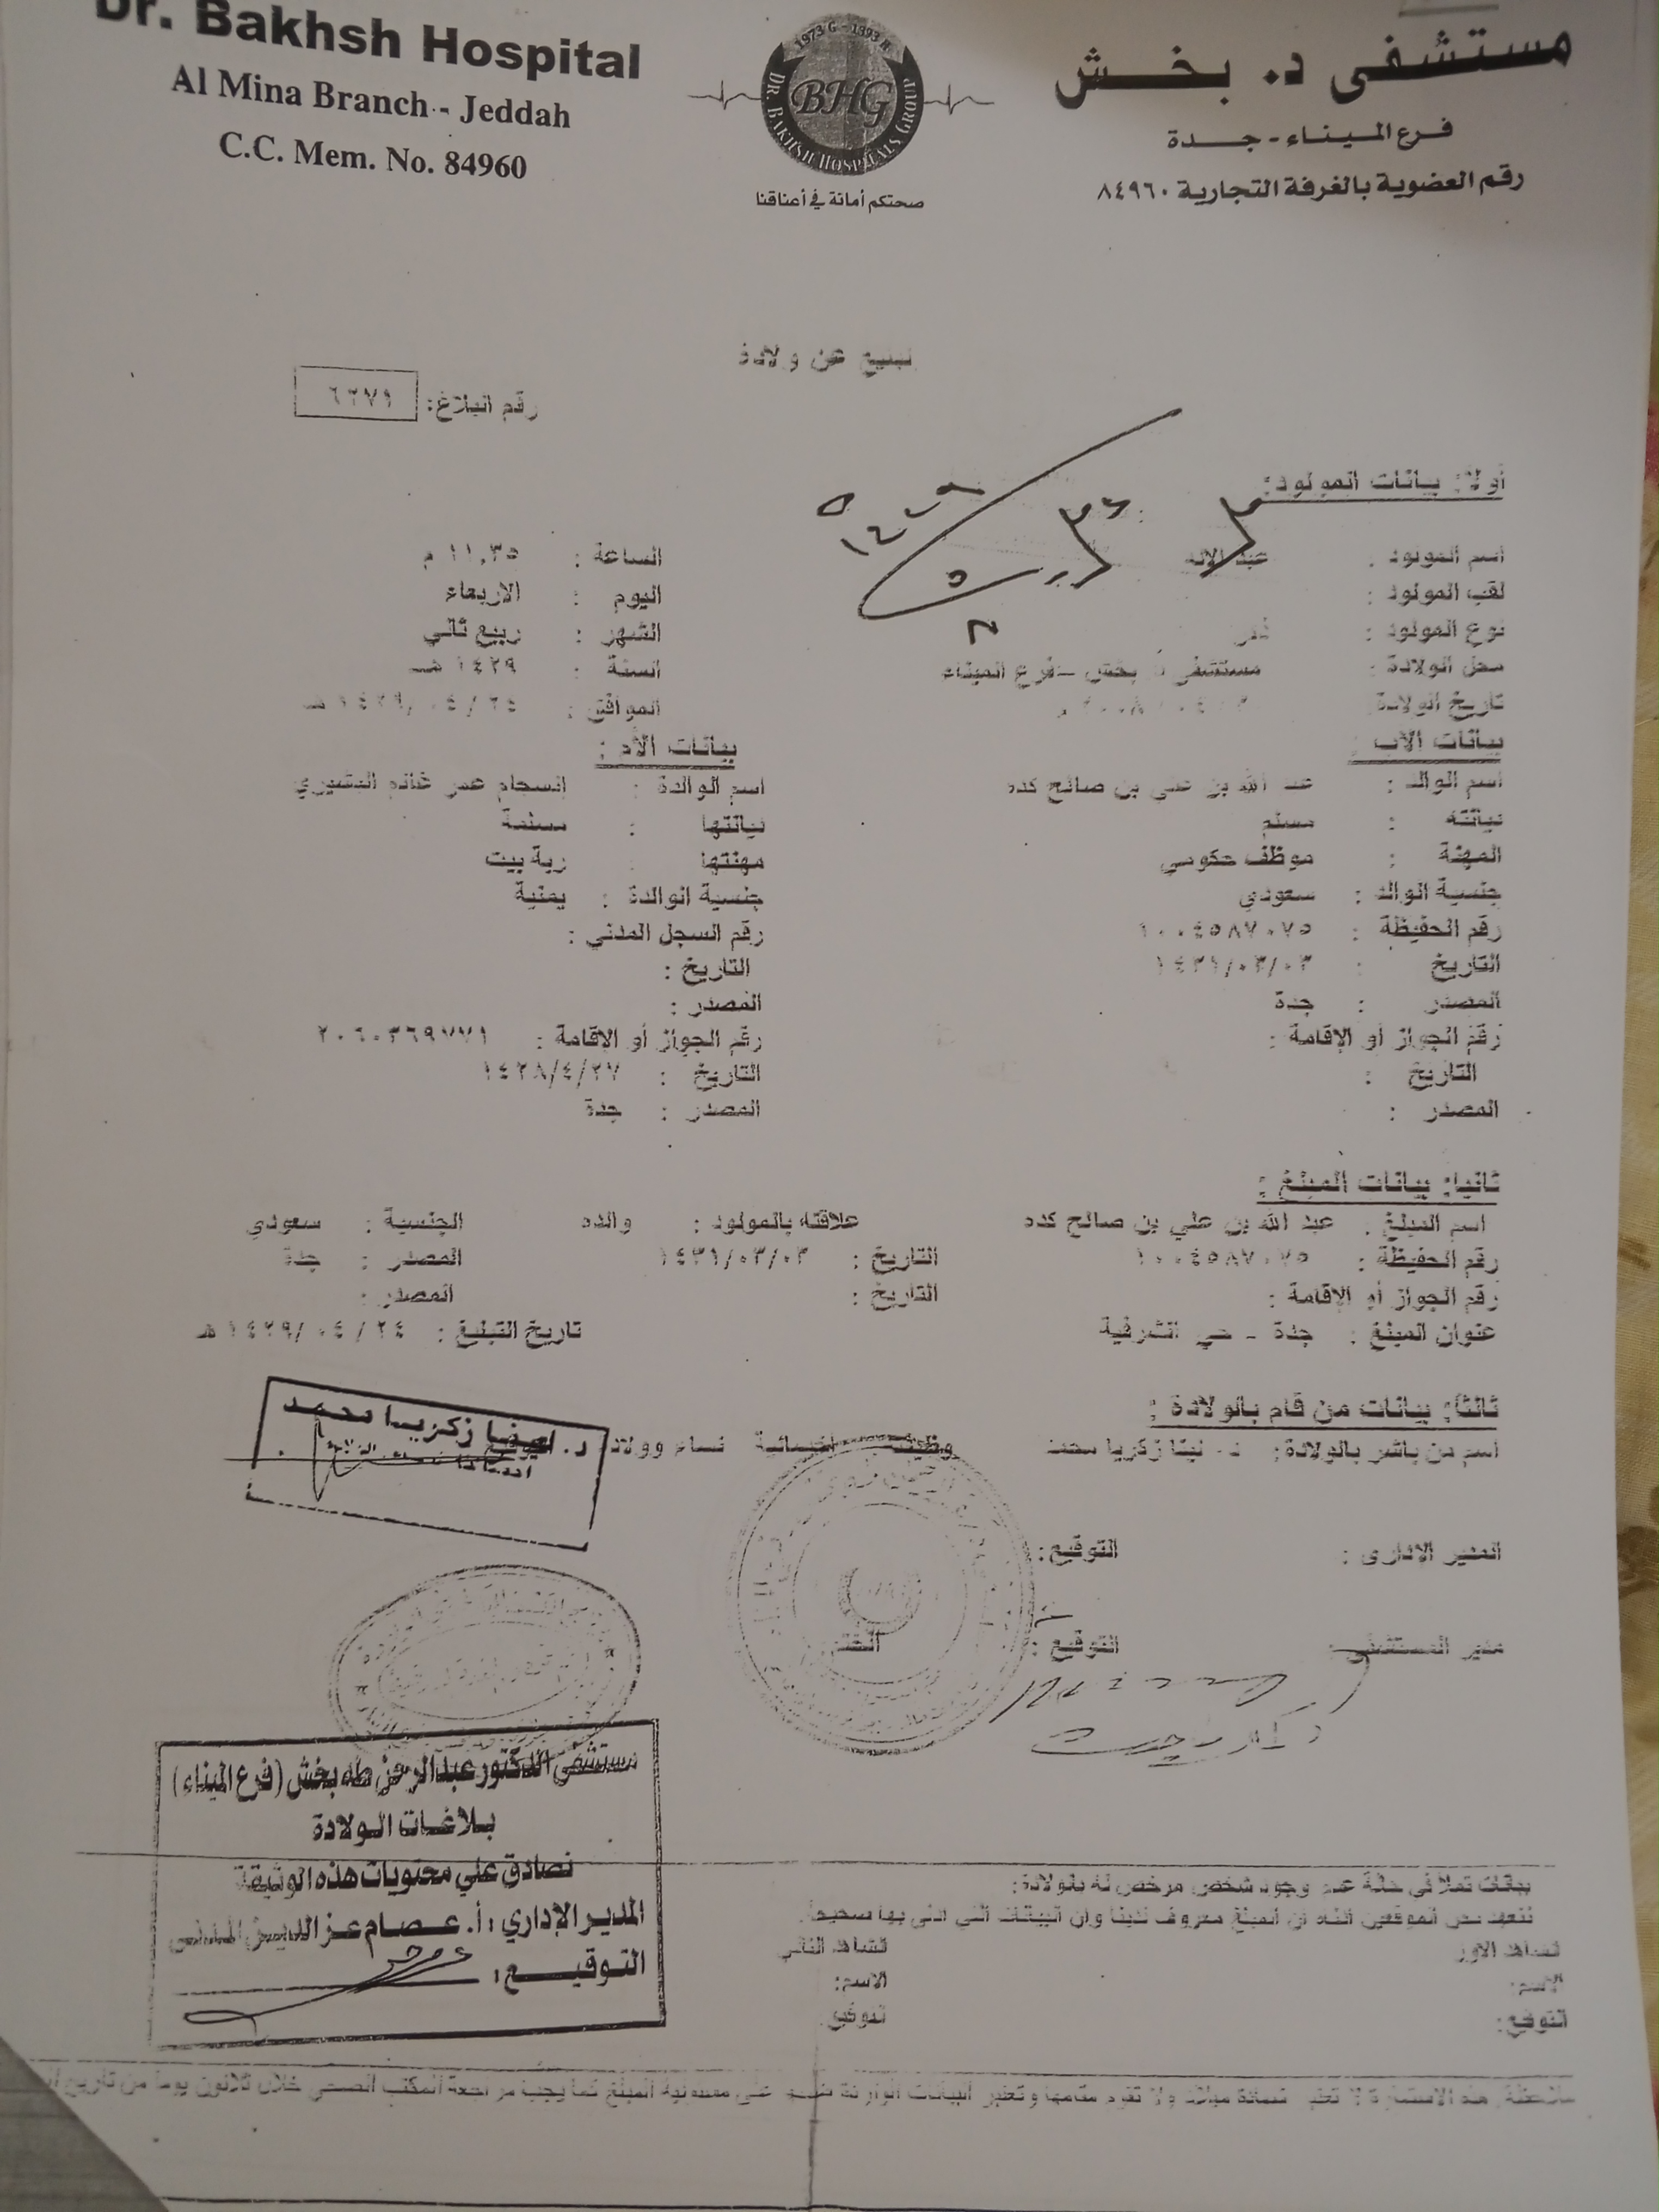 Dr. Bakhsh Hospital
Al Mina Branch - Jeddah
C.C. Mem. No. 84960
1973 G - 1393 H
DR. BAKHSH HOSPITALS GROUP
BHG
صحتكم أمانة في أعناقنا
مستشفى د. بخش
فرع الميناء - جدة
رقم العضوية بالغرفة التجارية ٨٤٩٦٠
تبليغ عن ولادة
رقم البلاغ:
أولا: بيانات المولود:
اسم المولود : عبد الاله الساعة : ١١,٣٥ م
لقب المولود : اليوم : الاربعاء
نوع المولود : ذكر الشهر : ربيع ثاني
محل الولادة : مستشفى د بخش - فرع الميناء السنة : ١٤٢٩ هـ
تاريخ الولادة الموافق : ٢٤ / ٠٤ /١٤٢٩ هـ
بيانات الأب : بيانات الأم :
اسم الوالد : عبد الله بن علي بن صالح كده اسم الوالدة : انسجام عمر غانم
ديانته : مسلم ديانتها : مسلمة
المهنة : موظف حكومي مهنتها : ربة بيت
جنسية الوالد : سعودي جنسية الوالدة : يمنية
رقم الحفيظة : ١٠٠٤٥٨٧٠٧٥ رقم السجل المدني :
التاريخ : ١٤٣١/٠٣/٠٣ التاريخ :
المصدر : جدة المصدر :
رقم الجواز أو الإقامة : رقم الجواز أو الإقامة : ٢٠٦٠٣٦٩٧٧١
التاريخ : التاريخ : ١٤٢٨/٤/٢٧
المصدر : المصدر : جدة
ثانيا: بيانات المبلغ :
اسم المبلغ : عبد الله بن علي بن صالح كده علاقته بالمولود : والده الجنسية : سعودي
رقم الحفيظة : ١٠٠٤٥٨٧٠٧٥ التاريخ : ١٤٣١/٠٣/٠٣ المصدر : جدة
رقم الجواز أو الإقامة : التاريخ : المصدر :
عنوان المبلغ : جدة - حي الشرفية تاريخ التبليغ : ٢٤ / ٠٤ /١٤٢٩ هـ
ثالثا: بيانات من قام بالولادة :
اسم من باشر بالولادة: د. لبنا زكريا محمد نساء وولادة
زكريا محمد
المدير الادارى : التوقيع :
مدير المستشفى التوقيع : الختم
مستشفى الدكتور عبد الرحمن طه بخش (فرع الميناء)
بلاغات الولادة
نصادق علي محتويات هذه الوثيقة
المدير الإداري : أ. عصام عز الدين المدني
التوقيع :
بيانات تملأ في حالة عدم وجود شخص مرخص له بالولادة:
نتعهد نحن الموقعين أدناه أن المبلغ معروف لدينا وأن البيانات التي أدلى بها صحيحة.
الشاهد الأول الشاهد الثاني
الاسم: الاسم:
التوقيع: التوقيع
ملاحظة: هذه الاستمارة لا تعتبر شهادة ميلاد ولا تقوم مقامها وتعتبر البيانات الواردة على مسئولية المبلغ كما يجب مراجعة المكتب الصحي خلال ثلاثون يوما من تاريخ